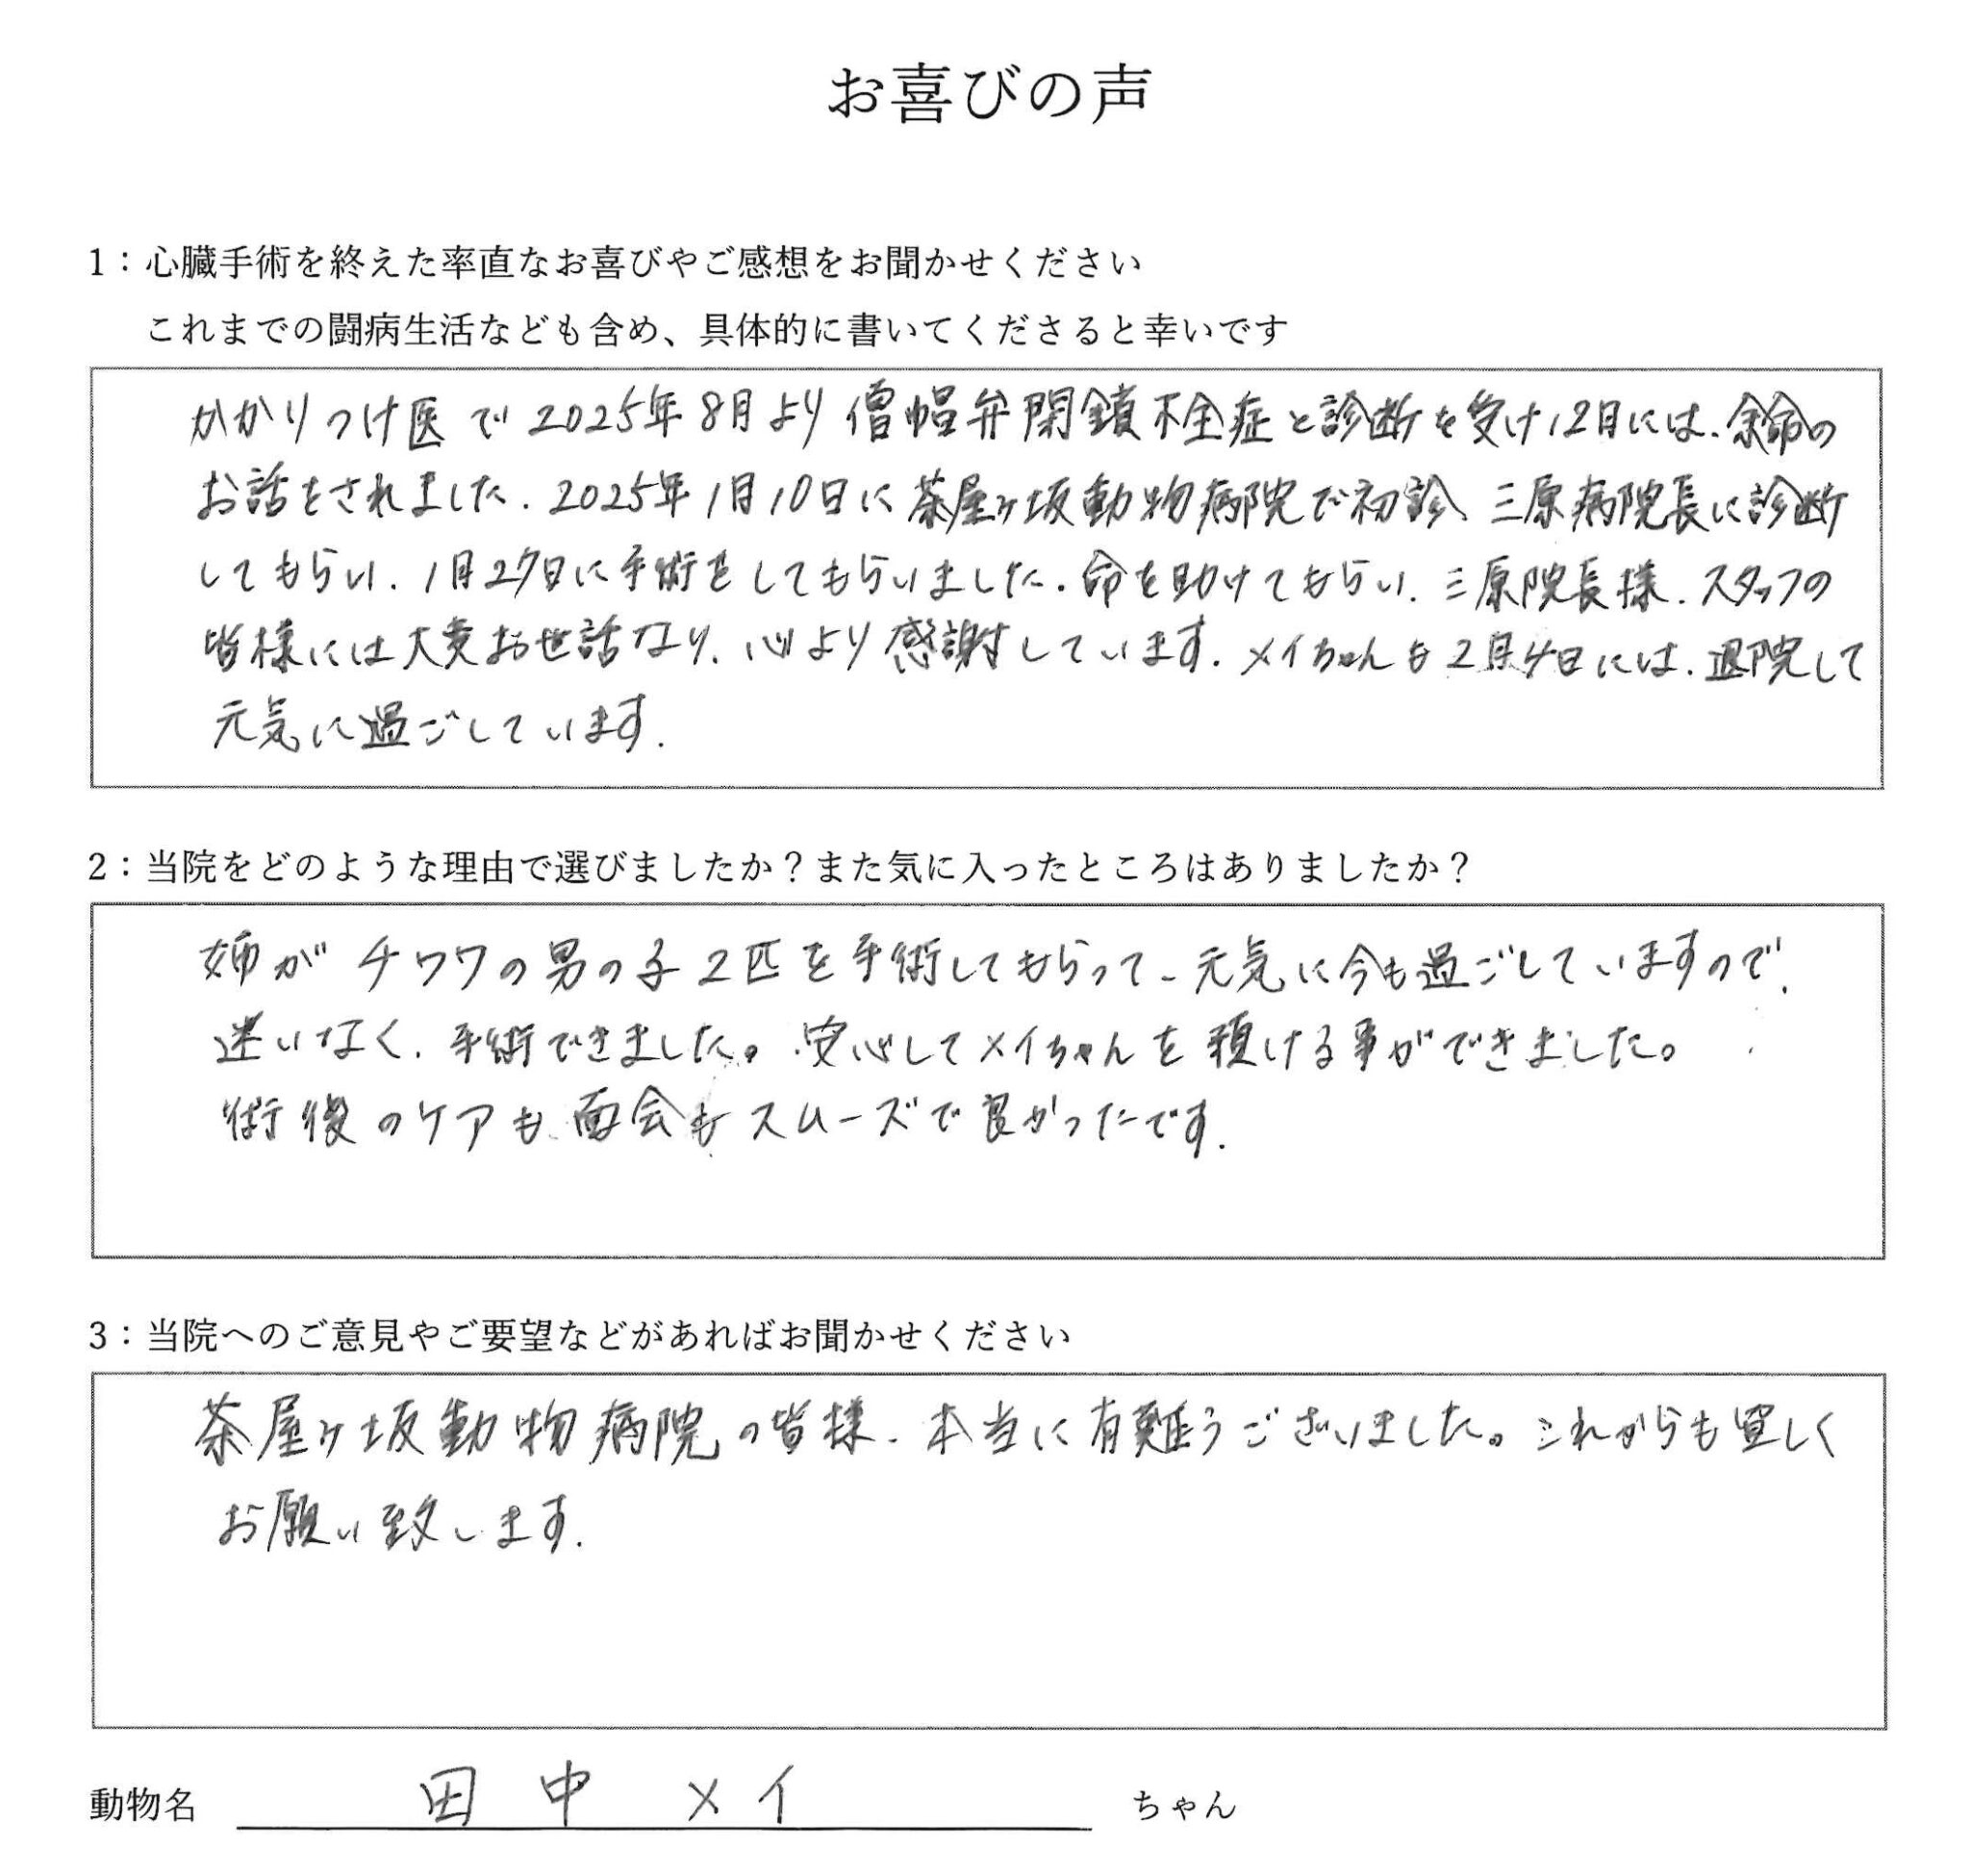 お喜びの声
1：心臓手術を終えた率直なお喜びやご感想をお聞かせください
これまでの闘病生活なども含め、具体的に書いてくださると幸いです
かかりつけ医で2025年8月より僧帽弁閉鎖不全症と診断を受け12月には、余命の
お話をされました。2025年1月10日に茶屋ヶ坂動物病院で初診、三原病院長に診断
してもらい、1月27日に手術をしてもらいました。命を助けてもらい、三原院長様、スタッフの
皆様には大変お世話なり、心より感謝しています。メイちゃんも2月4日には、退院して
元気に過ごしています。
2：当院をどのような理由で選びましたか？また気に入ったところはありましたか？
姉がチワワの男の子2匹を手術してもらって、元気に今も過ごしていますので、
迷いなく、手術できました。安心してメイちゃんを預ける事ができました。
術後のケアも、面会もスムーズで良かったです。
3：当院へのご意見やご要望などがあればお聞かせください
茶屋ヶ坂動物病院の皆様、本当に有難うございました。これからも宜しく
お願い致します。
動物名 田中 メイ ちゃん